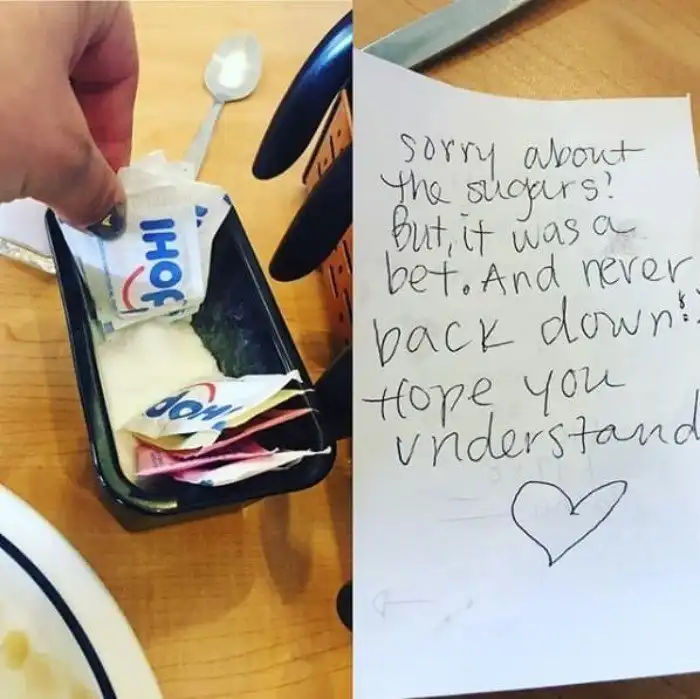 IHOP
IHOP
sorry about
the sugars!
But, it was a
bet. And never
back down!!
Hope you
understand